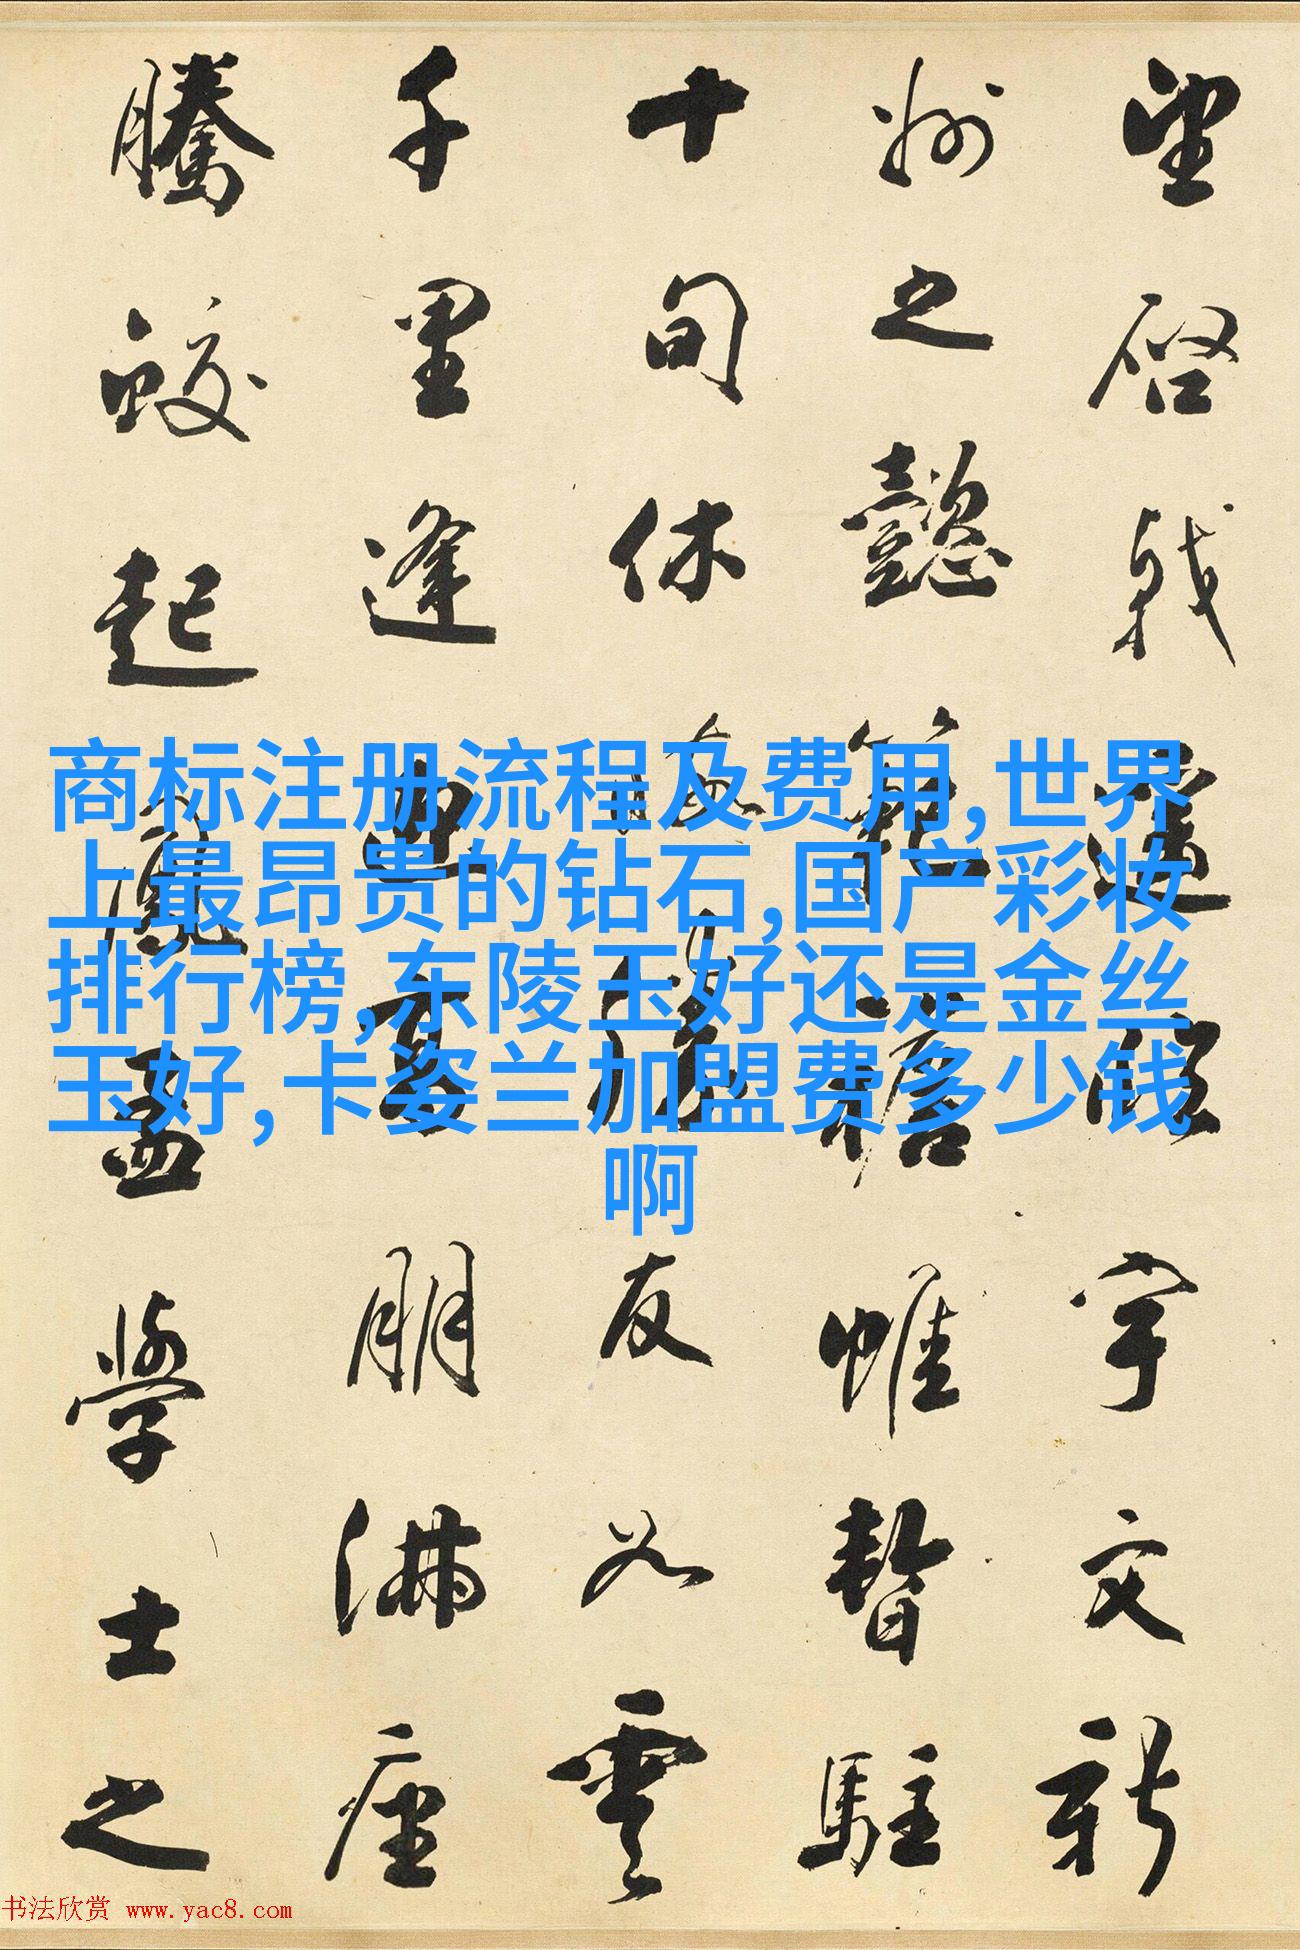 望啓戟遥臨宇文新
州之懿範襜帷暫駐
十旬休暇勝友如雲
千里逢迎高朋滿座
騰蛟起鳳孟學士之
商标注册流程及费用,世界
上最昂贵的钻石,国产彩妆
排行榜,东陵玉好还是金丝
玉好,卡姿兰加盟费多少钱
啊
书法欣赏 www.yac8.com